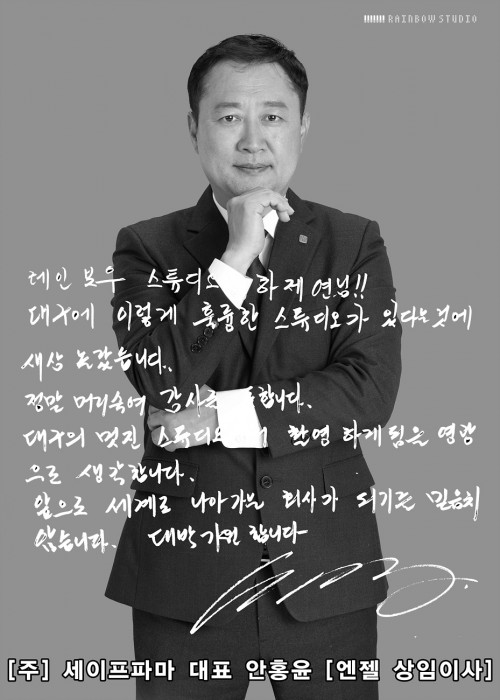 RAINBOW STUDIO
레인보우 스튜디오 하제연님!!
대구에 이렇게 훌륭한 스튜디오가 있다는것에
새삼 놀랐습니다.
정말 머리숙여 감사 합니다.
대구의 멋진 스튜디오 촬영하게됨을 영광
으로 생각합니다.
앞으로 세계로 나아가는 회사가 되기를 믿음치
않습니다. 대박기원 합니다
[주] 세이프파마 대표 안홍윤 [엔젤 상임이사]